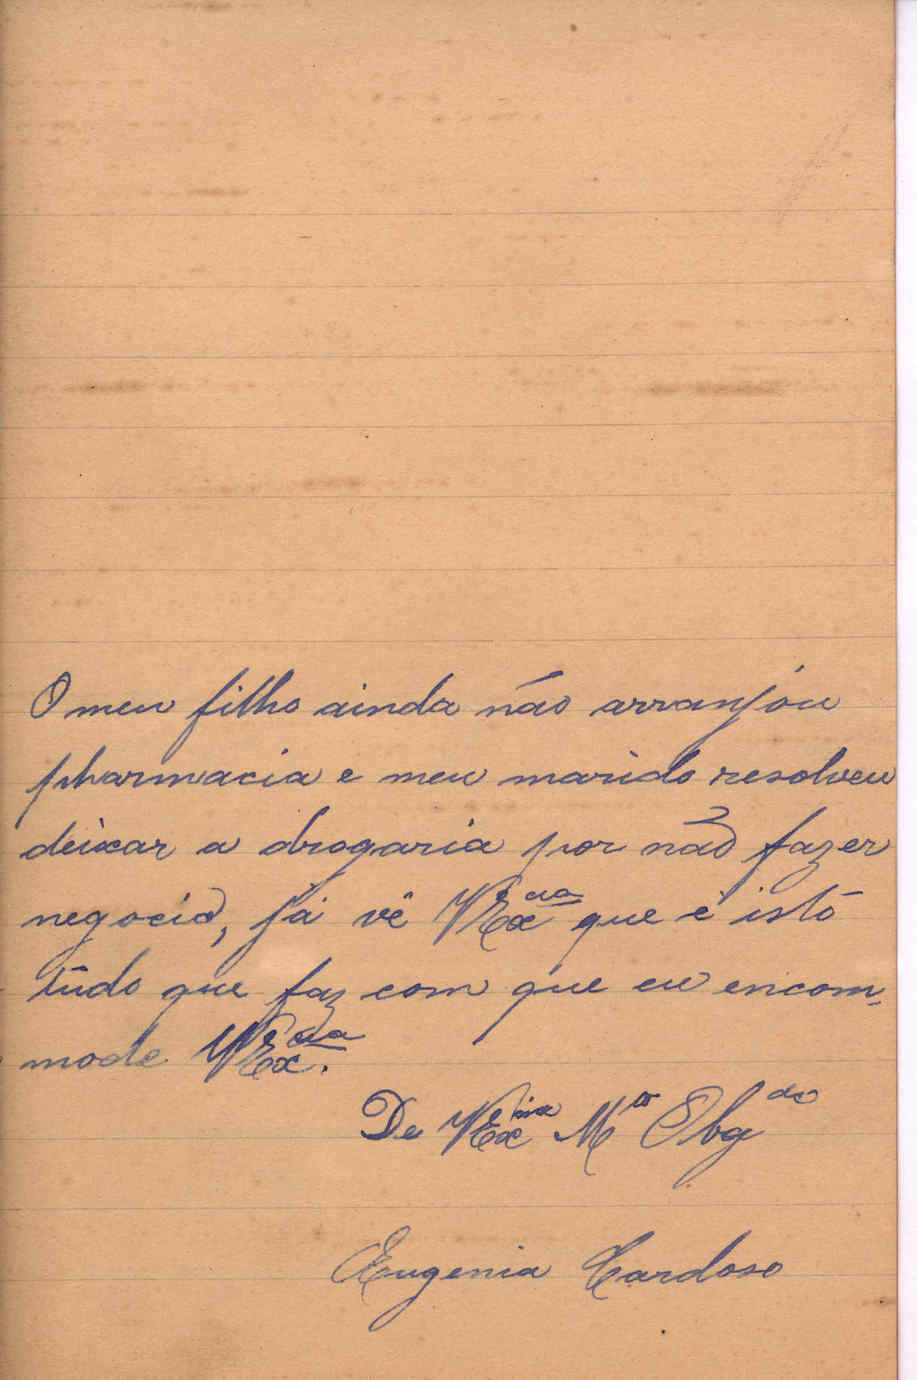 O meu filho ainda não arranjou
pharmacia e meu marido resolveu
deixar a drogaria por não fazer
negocio, já vê VEx^cia que é isto
tudo que faz com que eu encom-
mode VEx^cia.
De VEx^ma M^to Obg^do
Eugenia Cardoso